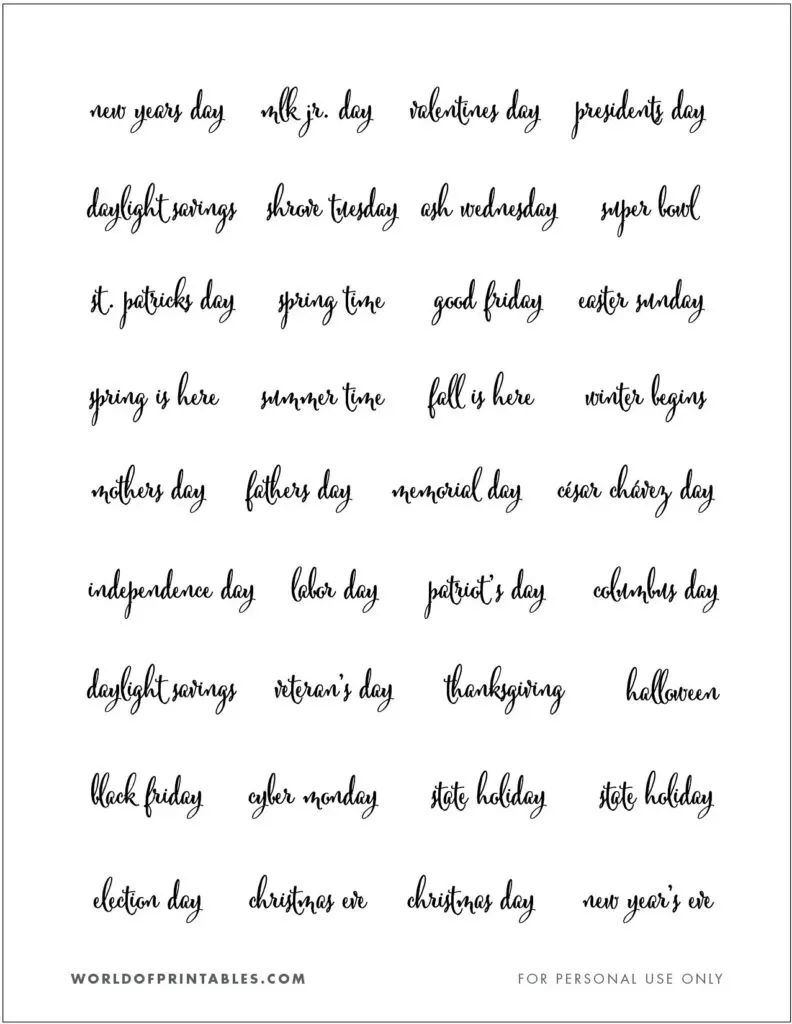 new years day mlk jr. day valentines day presidents day
daylight savings shrove tuesday ash wednesday super bowl
st. patricks day spring time good friday easter sunday
spring is here summer time fall is here winter begins
mothers day fathers day memorial day césar chávez day
independence day labor day patriot's day columbus day
daylight savings veteran's day thanksgiving halloween
black friday cyber monday state holiday state holiday
election day christmas eve christmas day new year's eve
WORLDOFPRINTABLES.COM FOR PERSONAL USE ONLY